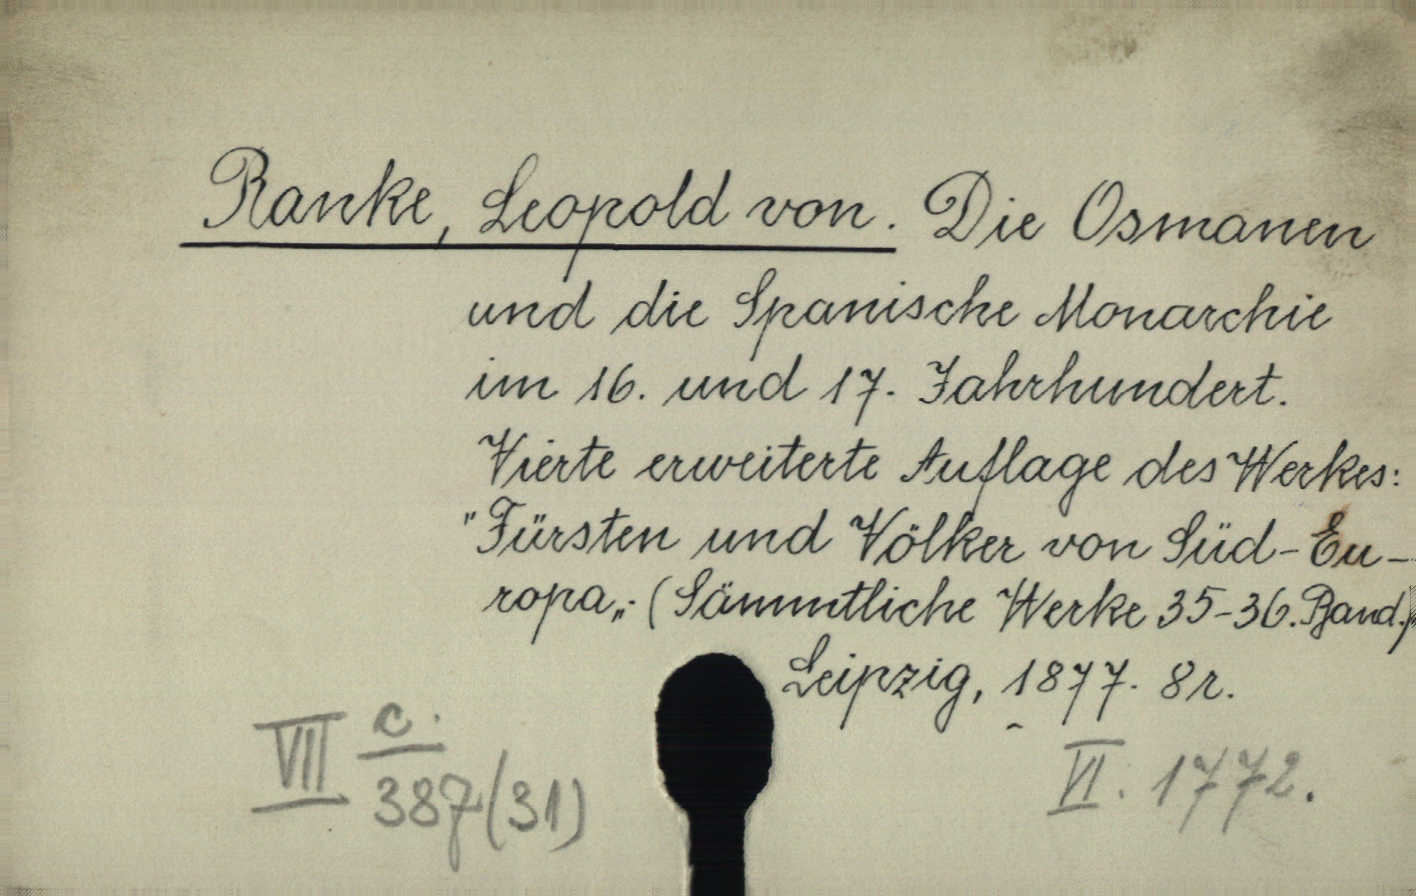 Ranke, Leopold von. Die Osmanen
und die Spanische Monarchie
im 16. und 17. Jahrhundert.
Vierte erweiterte Auflage des Werkes:
"Fürsten und Völker von Süd-Eu-
ropa„. (Sämmtliche Werke 35-36. Band.)
Leipzig, 1877. 8r.
VII c. 387(31)
VI. 1772.